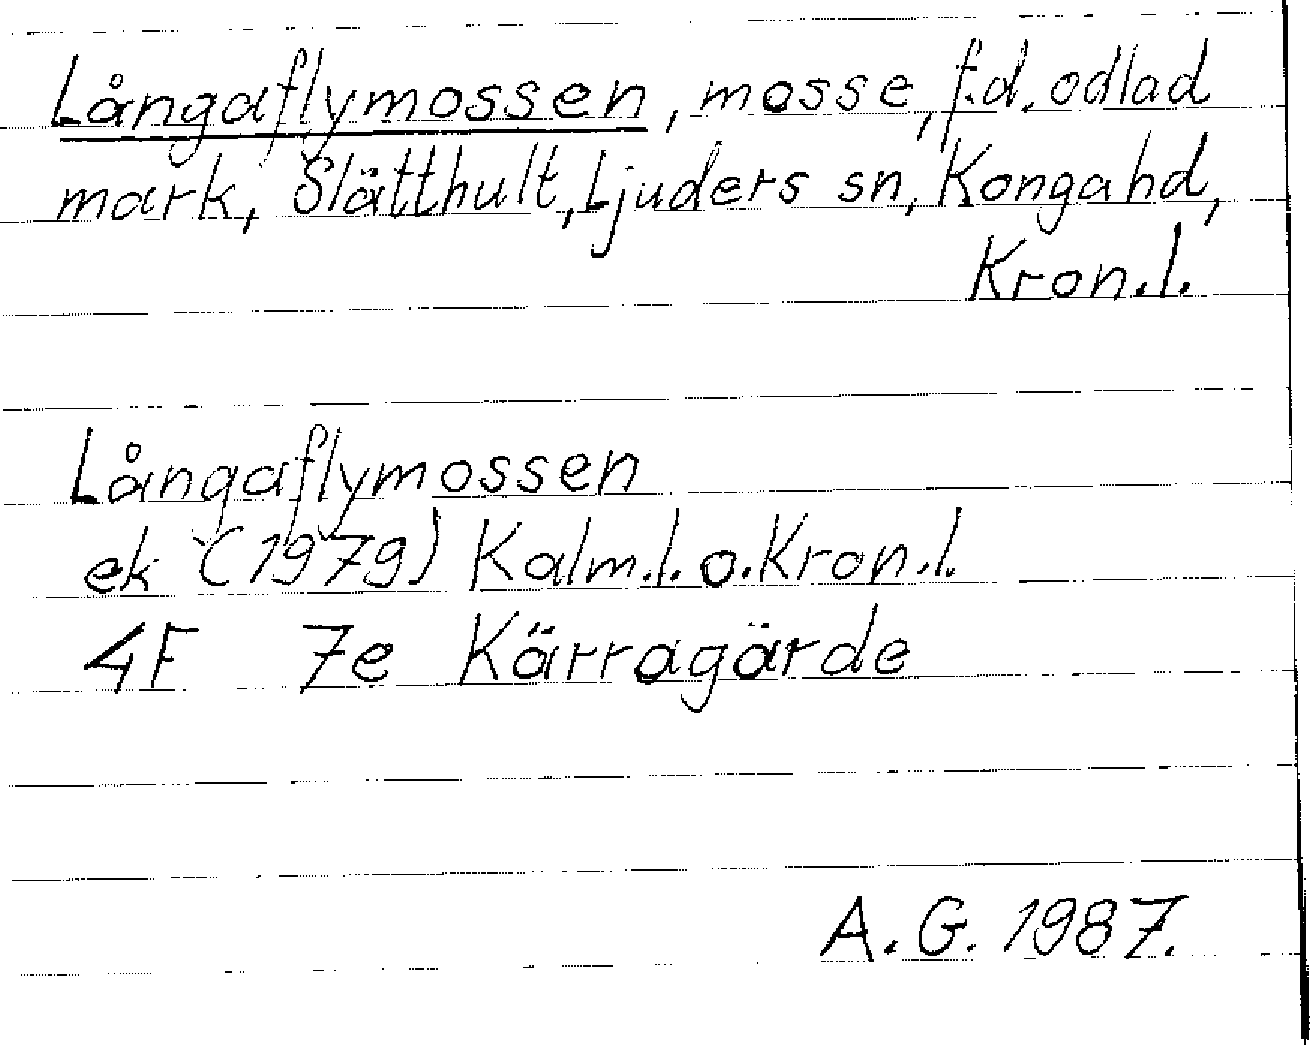 Långaflymossen, mosse, f.d. odlad
mark, Slätthult, Ljuders sn, Konga hd,
Kron.l.
Långaflymossen
ek (1979) Kalm.l. o. Kron.l.
4F 7e Kärragärde
A.G. 1987.